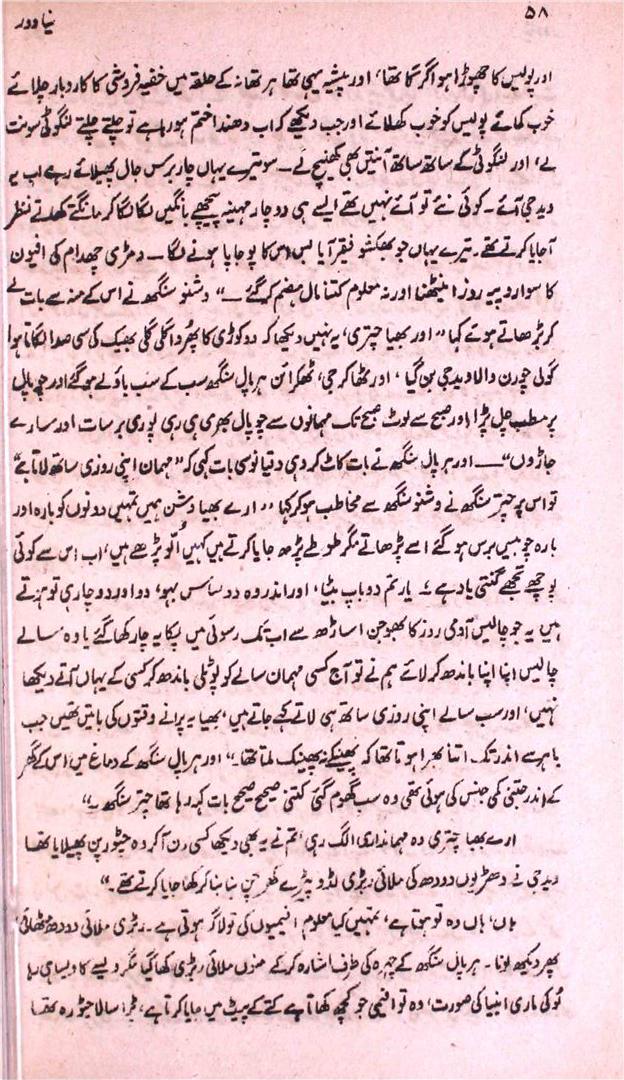 ۵۸
نیا دور
اور پولیس کا چھوڑا ہوا گرگا تھا، اور پیشہ یہی تھا ہر تھانہ کے حلقہ میں خفیہ فروشی کا کاروبار چلائے
خوب کمائے پولیس کو خوب کھلائے اور جب دیکھے کہ اب دھندا ختم ہو رہا ہے تو چلتے چلتے لنگوٹی سونت
لے، اور لنگوٹی کے ساتھ ساتھ آنتیں بھی کھینچ لے۔ سو تیرے یہاں چار برس جال پھیلائے رہے اب یہ
ویدجی آئے۔ کوئی نئے تو آئے نہیں تھے ایسے ہی دو چار مہینہ پیچھے بانگیں لگا لگا کر مانگتے کھاتے نظر
آجایا کرتے تھے۔ تیرے یہاں جو بھکشو فقیر آیا بس اس کا پوجاپا ہونے لگا۔ دمڑی چھدام کی افیون
کا سوا روپیہ روز اینٹھتا اور نہ معلوم کتنا مال ہضم کر گئے۔" وشنو سنگھ نے اس کے منہ سے بات لے
کر بڑھاتے ہوئے کہا "اور بھیا چتری، یہ نہیں دیکھا کہ دو کوڑی کا پھروا گلی گلی بھیک کی سی صدا لگاتا ہوا
گولی چورن والا ویدجی بن گیا، اور ٹھاکر جی، ٹھکرائن ہرپال سنگھ سب کے سب باؤلے ہو گئے اور چوپال
پر مطب چل پڑا اور صبح سے لوٹ صبح تک مہمانوں سے چوپال بھری ہی رہی پوری برسات اور سارے
جاڑوں"۔ اور ہرپال سنگھ نے بات کاٹ کر وہی دقیانوسی بات کہی کہ "مہمان اپنی روزی ساتھ لاتا ہے"
تو اس پر چتر سنگھ نے وشنو سنگھ سے مخاطب ہو کر کہا "ارے بھیا وشن ہمیں تمہیں دونوں کو بارہ اور
بارہ چوبیس برس ہو گئے اسے پڑھاتے مگر طوطے پڑھ جایا کرتے ہیں کہیں اُلّو پڑھے ہیں، اب اس سے کوئی
پوچھے تجھے گنتی یاد ہے؟ یار تم دو باپ بیٹا، اور اندر وہ دو ساس بہو، دو اور دو چار ہی تو ہوتے
ہیں یہ جو چالیس آدمی روز کا بھوجن اساڑھ سے اب تک رسوئی میں پکا یہ چار کھا گئے یا وہ سالے
چالیس اپنا اپنا باندھ کر لائے ہم نے تو آج کسی مہمان سالے کو پوٹلی باندھ کر کسی کے یہاں آتے دیکھا
نہیں، اور سب سالے اپنی روزی ساتھ ہی لاتے کہے جاتے ہیں، بھیا یہ پرانے وقتوں کی باتیں تھیں جب
باہر سے اندر تک اتنا بھرا ہوتا تھا کہ پھینکے نہ پھینک ملتا تھا۔" اور ہرپال سنگھ کے دماغ میں اس کے گھر
کے اندر جتنی کمی جنس کی ہوئی تھی وہ سب گھوم گئی کتنی صحیح صحیح بات کہہ رہا تھا چتر سنگھ۔"
ارے بھیا چتری وہ مہمانداری الگ رہی، تم نے یہ بھی دیکھا کسی دن آکر وہ چٹورپن پھیلایا تھا
ویدجی نے دھڑیوں دودھ کی ملائی ربڑی لڈو پیڑے بنا بنا کر کھا جایا کرتے تھے۔"
ہاں، ہاں وہ تو ہوتا ہے، تمہیں کیا معلوم افیمیوں کی تو لاگر ہوتی ہے۔ ربڑی ملائی دودھ مٹھائی،
پھر دیکھ لونا۔ ہرپال سنگھ کے چہرہ کی طرف اشارہ کر کے منوں ملائی ربڑی کھا گیا مگر ویسے کا ویسا ہی رہا
لُو کی ماری انبیا کی صورت، وہ تو افیمی جو کچھ کھاتا ہے کتے کے پیٹ میں جایا کرتا ہے، بڑا سالا چٹورہ تھا